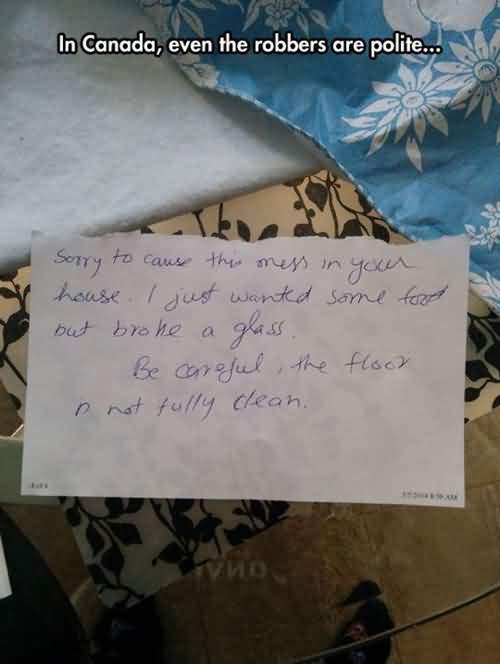 In Canada, even the robbers are polite...
Sorry to cause this mess in your
house. I just wanted some food
but broke a glass.
Be careful, the floor
is not fully clean.
3/5/2014 8:50 AM